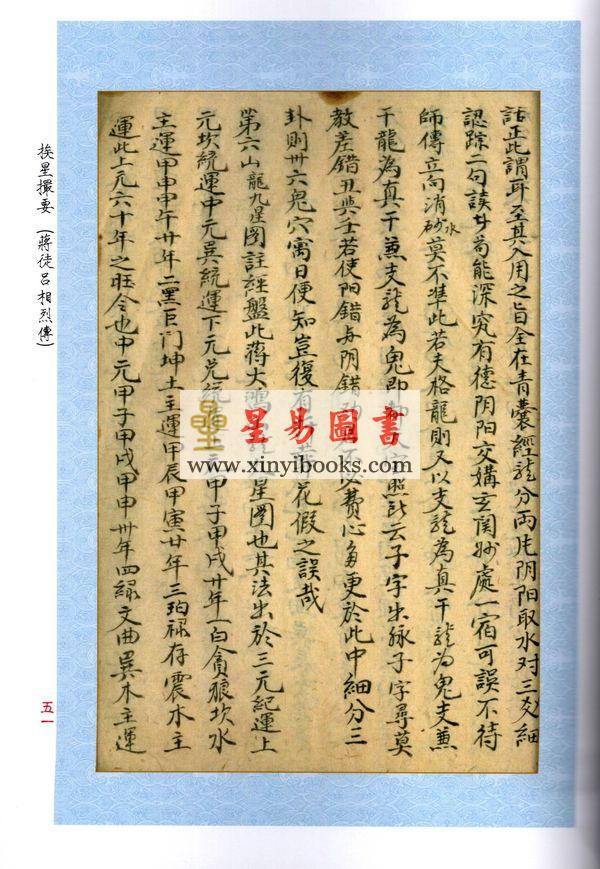 訣正此謂耳至其入用之旨全在青囊經龍分両片阴阳取水对三爻細
認踪二句誤甘苟能深究有德阴阳交媾玄関妙處一宿可誤不待
師傳立向消砂水莫不準此若夫格龍則又以支龍為真干龍为鬼支兼
干龍為真干兼支龍為鬼即如穴照訣云子字出脉子字尋莫
教差錯丑與壬若使阳錯与阴錯不必費心多更於此中細分三
卦則卅六鬼穴寓目便知豈復有花假之誤哉
第六山龍九星图註経盤此蒋大鴻星圖也其法出於三元紀運上
元坎統運中元巽統運下元兑統甲子甲戌廿年一白貪狼坎水
主運甲申甲午廿年二黑巨门坤土主運甲辰甲寅廿年三珀禄存震木主
運此上元六十年之旺令也中元甲子甲戌甲申卅年四緑文曲巽木主運
挨星撮要（蔣徒呂相烈傳）
五一
星易圖書
www.xinyibooks.com